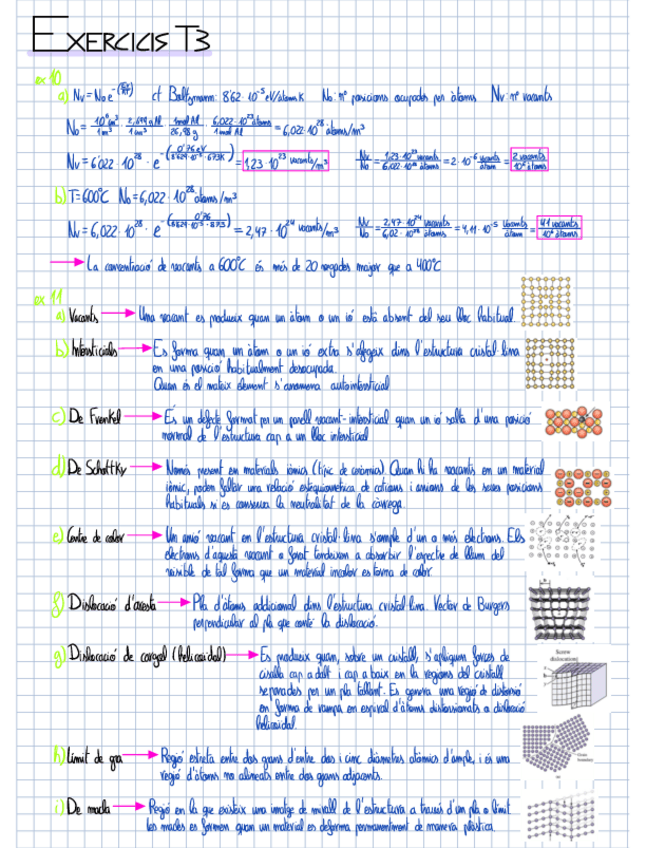 EXERCICIS T3
ex 10
a) Nv = No e^-(Qv/kT) ct Boltzmann: 8'62·10^-5 eV/àtoms K No: nº posicions ocupades per àtoms Nv: nº vacants
No = 10^6 cm³/1 m³ · 2,699 g Al/1 cm³ · 1 mol Al/26,98 g · 6,022·10^23 àtoms/1 mol Al = 6,022·10^28 àtoms/m³
Nv = 6'022·10^28 · e^-(0'76 eV/8'624·10^-5·673K) = 1,23·10^23 vacants/m³ Nv/No = 1,23·10^23 vacants/6,022·10^28 àtoms = 2·10^-6 vacants/àtom = 2 vacants/10^6 àtoms
b) T=600°C No=6,022·10^28 àtoms/m³
Nv = 6,022·10^28 · e^-(0'76/8'624·10^-5·873) = 2,47·10^24 vacants/m³ Nv/No = 2,47·10^24 vacants/6,02·10^28 àtoms = 4,11·10^-5 vacants/àtom = 41 vacants/10^6 àtoms
→ La concentració de vacants a 600°C és més de 20 vegades major que a 400°C
ex 11
a) Vacants → Una vacant es produeix quan un àtom o un ió està absent del seu lloc habitual.
b) Intersticials → Es forma quan un àtom o un ió extra s'afegeix dins l'estructura cristal·lina
en una posició habitualment desocupada.
Quan és el mateix element s'anomena autointersticial
c) De Frenkel → És un defecte format per un parell vacant-intersticial quan un ió salta d'una posició
normal de l'estructura cap a un lloc intersticial
d) De Schottky → Només present en materials iònics (típic de ceràmics). Quan hi ha vacants en un material
iònic, poden faltar una relació estequiomètrica de cations i anions de les seues posicions
habituals si es conserva la neutralitat de la càrrega.
e) Centre de color → Un anió vacant en l'estructura cristal·lina s'omple d'un o més electrons. Els
electrons d'aquesta vacant o forat tendeixen a absorbir l'espectre de llum del
visible de tal forma que un material incolor es torna de color
f) Dislocació d'aresta → Pla d'àtoms addicional dins l'estructura cristal·lina. Vector de Burgers
perpendicular al pla que conté la dislocació.
g) Dislocació de cargol (helicoidal) → Es produeix quan, sobre un cristall, s'apliquen forces de
cisalla cap a dalt i cap a baix en la regions del cristall
separades per un pla tallant. Es genera una regió de distorsió
en forma de rampa en espiral d'àtoms distorsionats o dislocació
helicoidal.
Screw
dislocation
h) Límit de gra → Regió estreta entre dos grans d'entre dos i cinc diàmetres atòmics d'ample, i és una
regió d'àtoms no alineats entre dos grans adjacents.
i) De macla → Regió en la que existeix una imatge de mirall de l'estructura a través d'un pla o límit
Les macles es formen quan un material es deforma permanentment de manera plàstica.